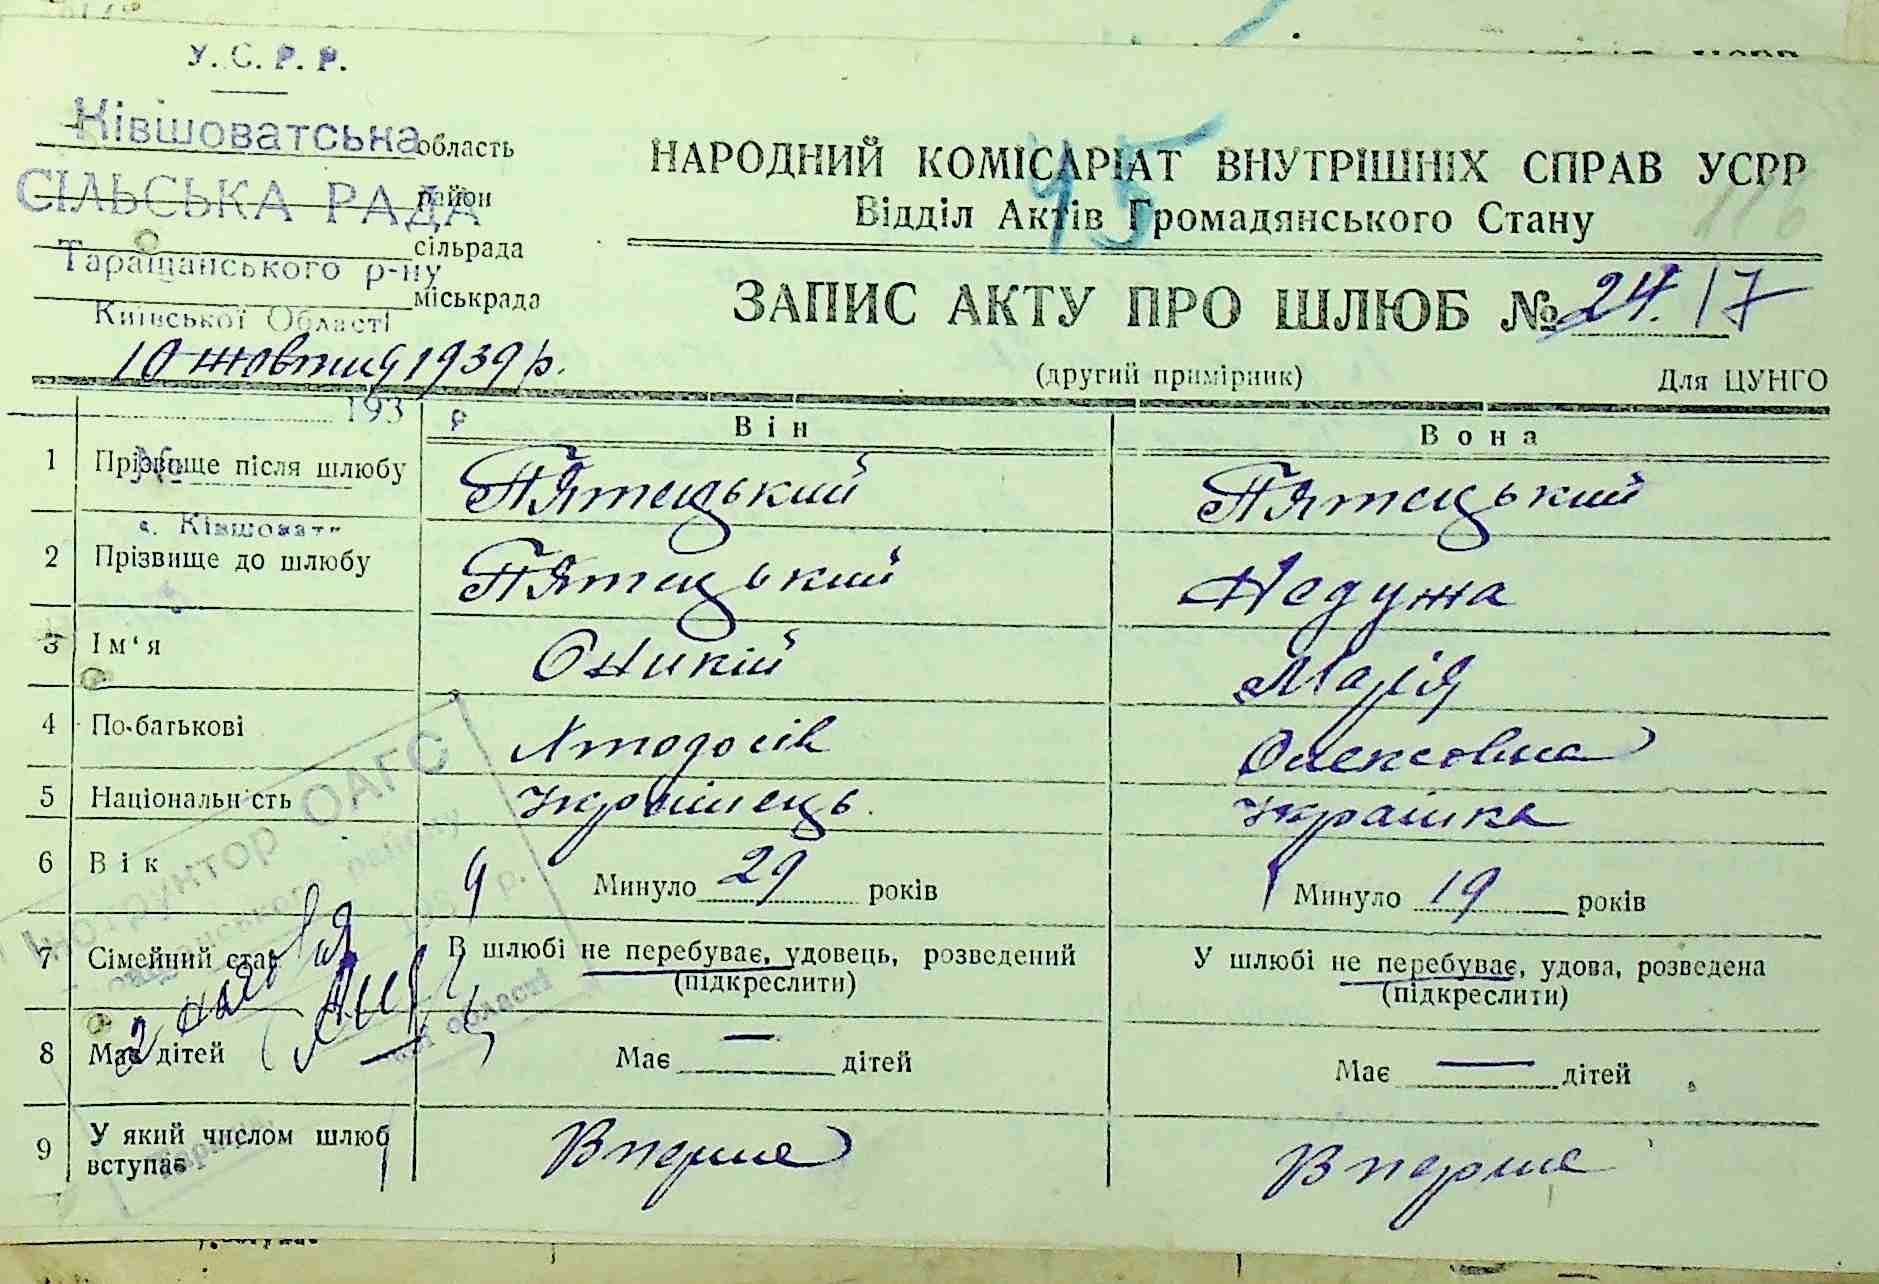 У. С. Р. Р.
Ківшоватська область
СІЛЬСЬКА РАДА район
сільрада
Таращанського р-ну
міськрада
Київської Області
10 жовтня 1939 р.
193
НАРОДНИЙ КОМІСАРІАТ ВНУТРІШНІХ СПРАВ УСРР
45
116
Відділ Актів Громадянського Стану
ЗАПИС АКТУ ПРО ШЛЮБ № 24. 17
(другий примірник) Для ЦУНГО
Він Вона
1 Прізвище після шлюбу П'ятецький П'ятецький
с. Ківшоват
2 Прізвище до шлюбу П'ятецький Недужа
3 Ім'я Оникій Марія
4 По-батькові Олексовна
5 Національність Українець Українка
6 Вік Минуло 29 років Минуло 19 років
7 Сімейний стан В шлюбі не перебуває, удовець, розведений У шлюбі не перебуває, удова, розведена
(підкреслити) (підкреслити)
8 Має дітей Має — дітей Має — дітей
9 У який числом шлюб вступає Вперше Вперше
Інструктор ОАГС
району
193 р.
області